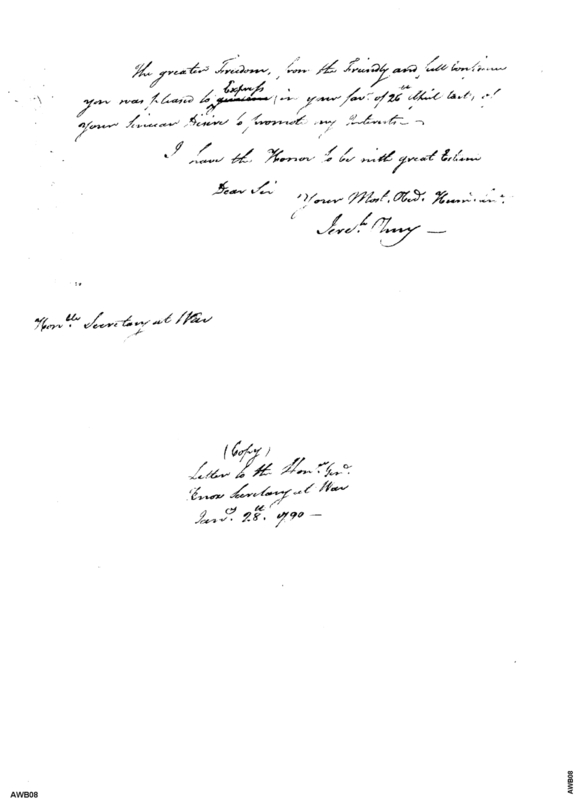 the greater Freedom, from the Friendly and full
you was pleased to Express in your favr. of 26th April last, of
your Sincear Desire to promote my Interests –
I have the Honor to be with great Esteem
Dear Sir
Your Most. Obd. Humb.
Jereh.
Honble. Secretary at War
(Copy)
Letter to the Honbl. Genl.
Knox Secretary at War
Jany. 28th. 1790 —
AWB08
AWB08